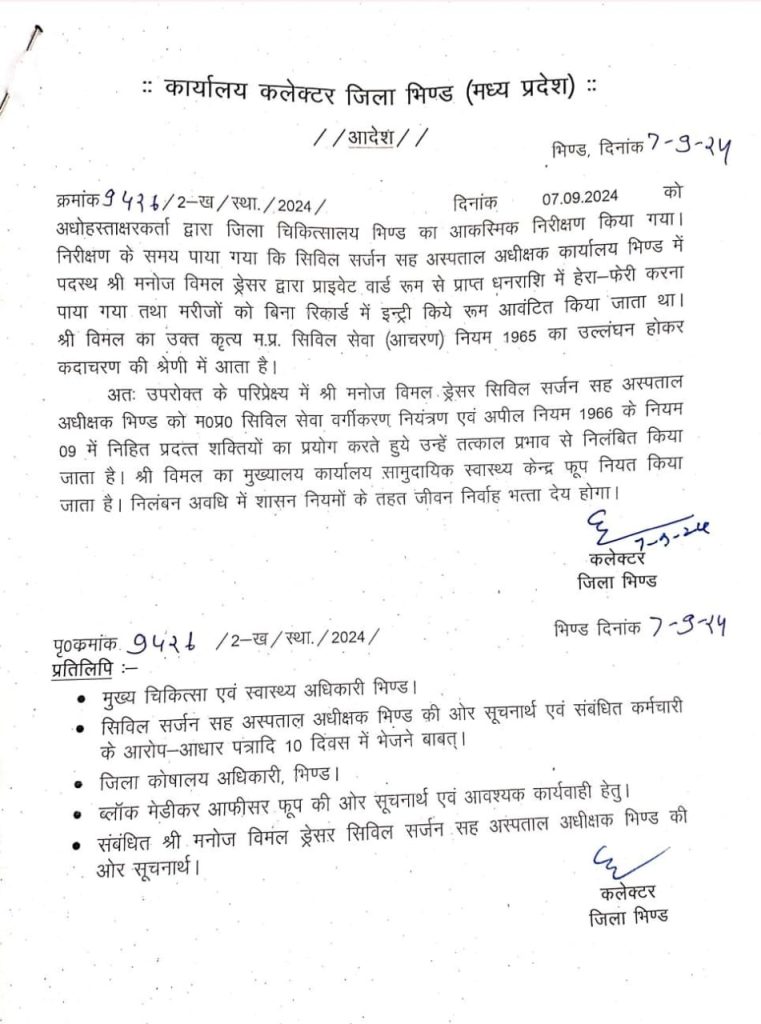 :: कार्यालय कलेक्टर जिला भिण्ड (मध्य प्रदेश) ::
//आदेश//
भिण्ड, दिनांक 7-9-24
क्रमांक /2–ख/स्था./2024/ दिनांक 07.09.2024 को
अधोहस्ताक्षरकर्ता द्वारा जिला चिकित्सालय भिण्ड का आकस्मिक निरीक्षण किया गया।
निरीक्षण के समय पाया गया कि सिविल सर्जन सह अस्पताल अधीक्षक कार्यालय भिण्ड में
पदस्थ श्री मनोज विमल ड्रेसर द्वारा प्राइवेट वार्ड रूम से प्राप्त धनराशि में हेरा–फेरी करना
पाया गया तथा मरीजों को बिना रिकार्ड में इन्ट्री किये रूम आवंटित किया जाता था।
श्री विमल का उक्त कृत्य म.प्र. सिविल सेवा (आचरण) नियम 1965 का उल्लंघन होकर
कदाचरण की श्रेणी में आता है।
अतः उपरोक्त के परिप्रेक्ष्य में श्री मनोज विमल ड्रेसर सिविल सर्जन सह अस्पताल
अधीक्षक भिण्ड को म0प्र0 सिविल सेवा वर्गीकरण नियंत्रण एवं अपील नियम 1966 के नियम
09 में निहित प्रदत्त शक्तियों का प्रयोग करते हुये उन्हें तत्काल प्रभाव से निलंबित किया
जाता है। श्री विमल का मुख्यालय कार्यालय सामुदायिक स्वास्थ्य केन्द्र फूप नियत किया
जाता है। निलंबन अवधि में शासन नियमों के तहत जीवन निर्वाह भत्ता देय होगा।
7-9-24
कलेक्टर
जिला भिण्ड
पृ0क्रमांक /2–ख/स्था./2024/ भिण्ड दिनांक 7-9-24
प्रतिलिपि :–
• मुख्य चिकित्सा एवं स्वास्थ्य अधिकारी भिण्ड।
• सिविल सर्जन सह अस्पताल अधीक्षक भिण्ड की ओर सूचनार्थ एवं संबंधित कर्मचारी
के आरोप–आधार पत्रादि 10 दिवस में भेजने बाबत्।
• जिला कोषालय अधिकारी, भिण्ड।
• ब्लॉक मेडीकर आफीसर फूप की ओर सूचनार्थ एवं आवश्यक कार्यवाही हेतु।
• संबंधित श्री मनोज विमल ड्रेसर सिविल सर्जन सह अस्पताल अधीक्षक भिण्ड की
ओर सूचनार्थ।
कलेक्टर
जिला भिण्ड